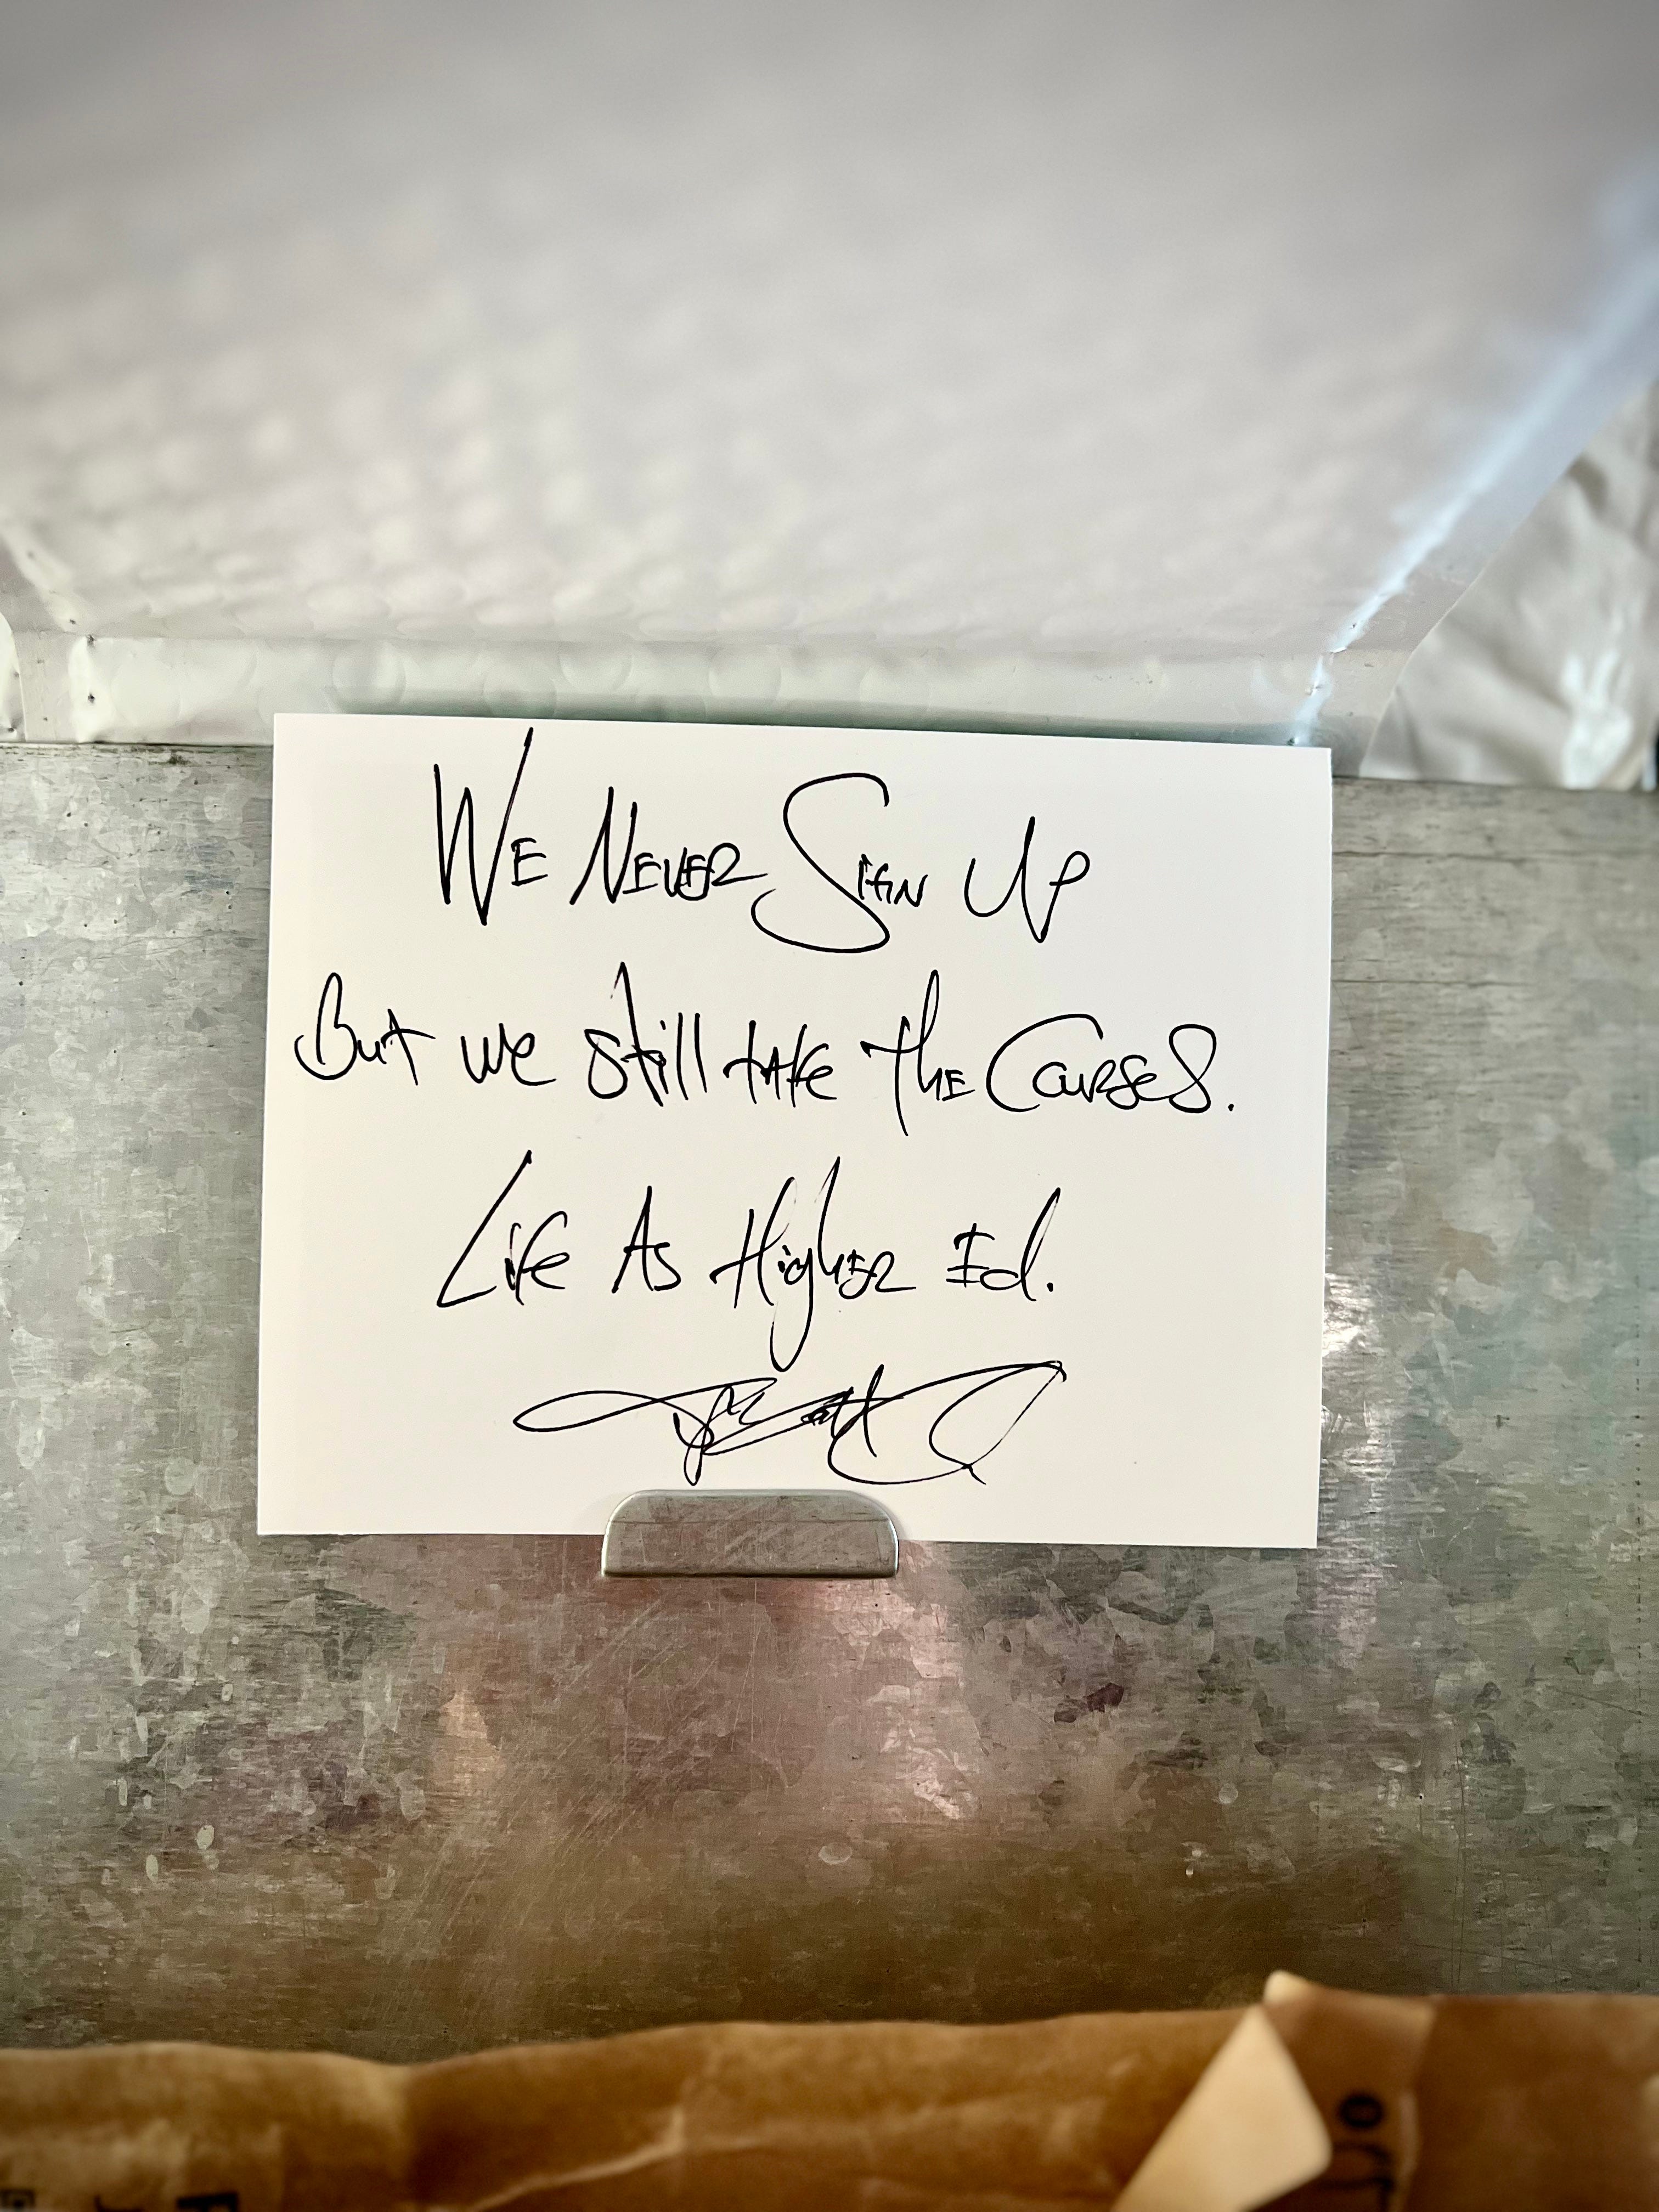 We Never Sign Up
But we still take the Courses.
Life As Higher Ed.